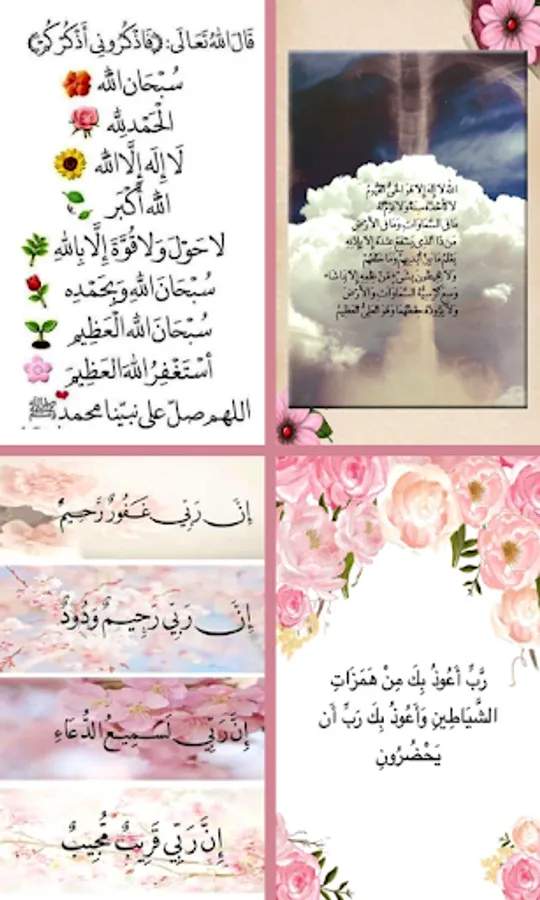 قَالَ اللهُ تَعَالَى: ﴿فَاذْكُرُونِي أَذْكُرْكُمْ﴾
سُبْحَانَ الله
الْحَمْدُ لِلَّه
لَا إِلَهَ إِلَّا الله
الله أَكْبَر
لا حَوْلَ وَلا قُوَّةَ إِلَّا بِاللهِ
سُبْحَانَ اللهِ وَبِحَمْدِهِ
سُبْحَانَ اللهِ الْعَظِيمِ
أَسْتَغْفِرُ اللهَ الْعَظِيمَ
اللهم صلّ على نبيّنا محمد ﷺ
اللهُ لا إِلَهَ إِلا هُوَ الْحَيُّ الْقَيُّومُ
لا تَأْخُذُهُ سِنَةٌ وَلا نَوْمٌ لَهُ
مَا فِي السَّمَاوَاتِ وَمَا فِي الأَرْضِ
مَن ذَا الَّذِي يَشْفَعُ عِنْدَهُ إِلا بِإِذْنِهِ
يَعْلَمُ مَا بَيْنَ أَيْدِيهِمْ وَمَا خَلْفَهُمْ
وَلا يُحِيطُونَ بِشَيْءٍ مِّنْ عِلْمِهِ إِلا بِمَا شَاءَ
وَسِعَ كُرْسِيُّهُ السَّمَاوَاتِ وَالأَرْضَ
وَلا يَؤُودُهُ حِفْظُهُمَا وَهُوَ الْعَلِيُّ الْعَظِيمُ
إِنَّ رَبِّي غَفُورٌ رَّحِيمٌ
إِنَّ رَبِّي رَحِيمٌ وَدُودٌ
إِنَّ رَبِّي لَسَمِيعُ الدُّعَاءِ
إِنَّ رَبِّي قَرِيبٌ مُّجِيبٌ
رَّبِّ أَعُوذُ بِكَ مِنْ هَمَزَاتِ
الشَّيَاطِينِ وَأَعُوذُ بِكَ رَبِّ أَن
يَحْضُرُونِ